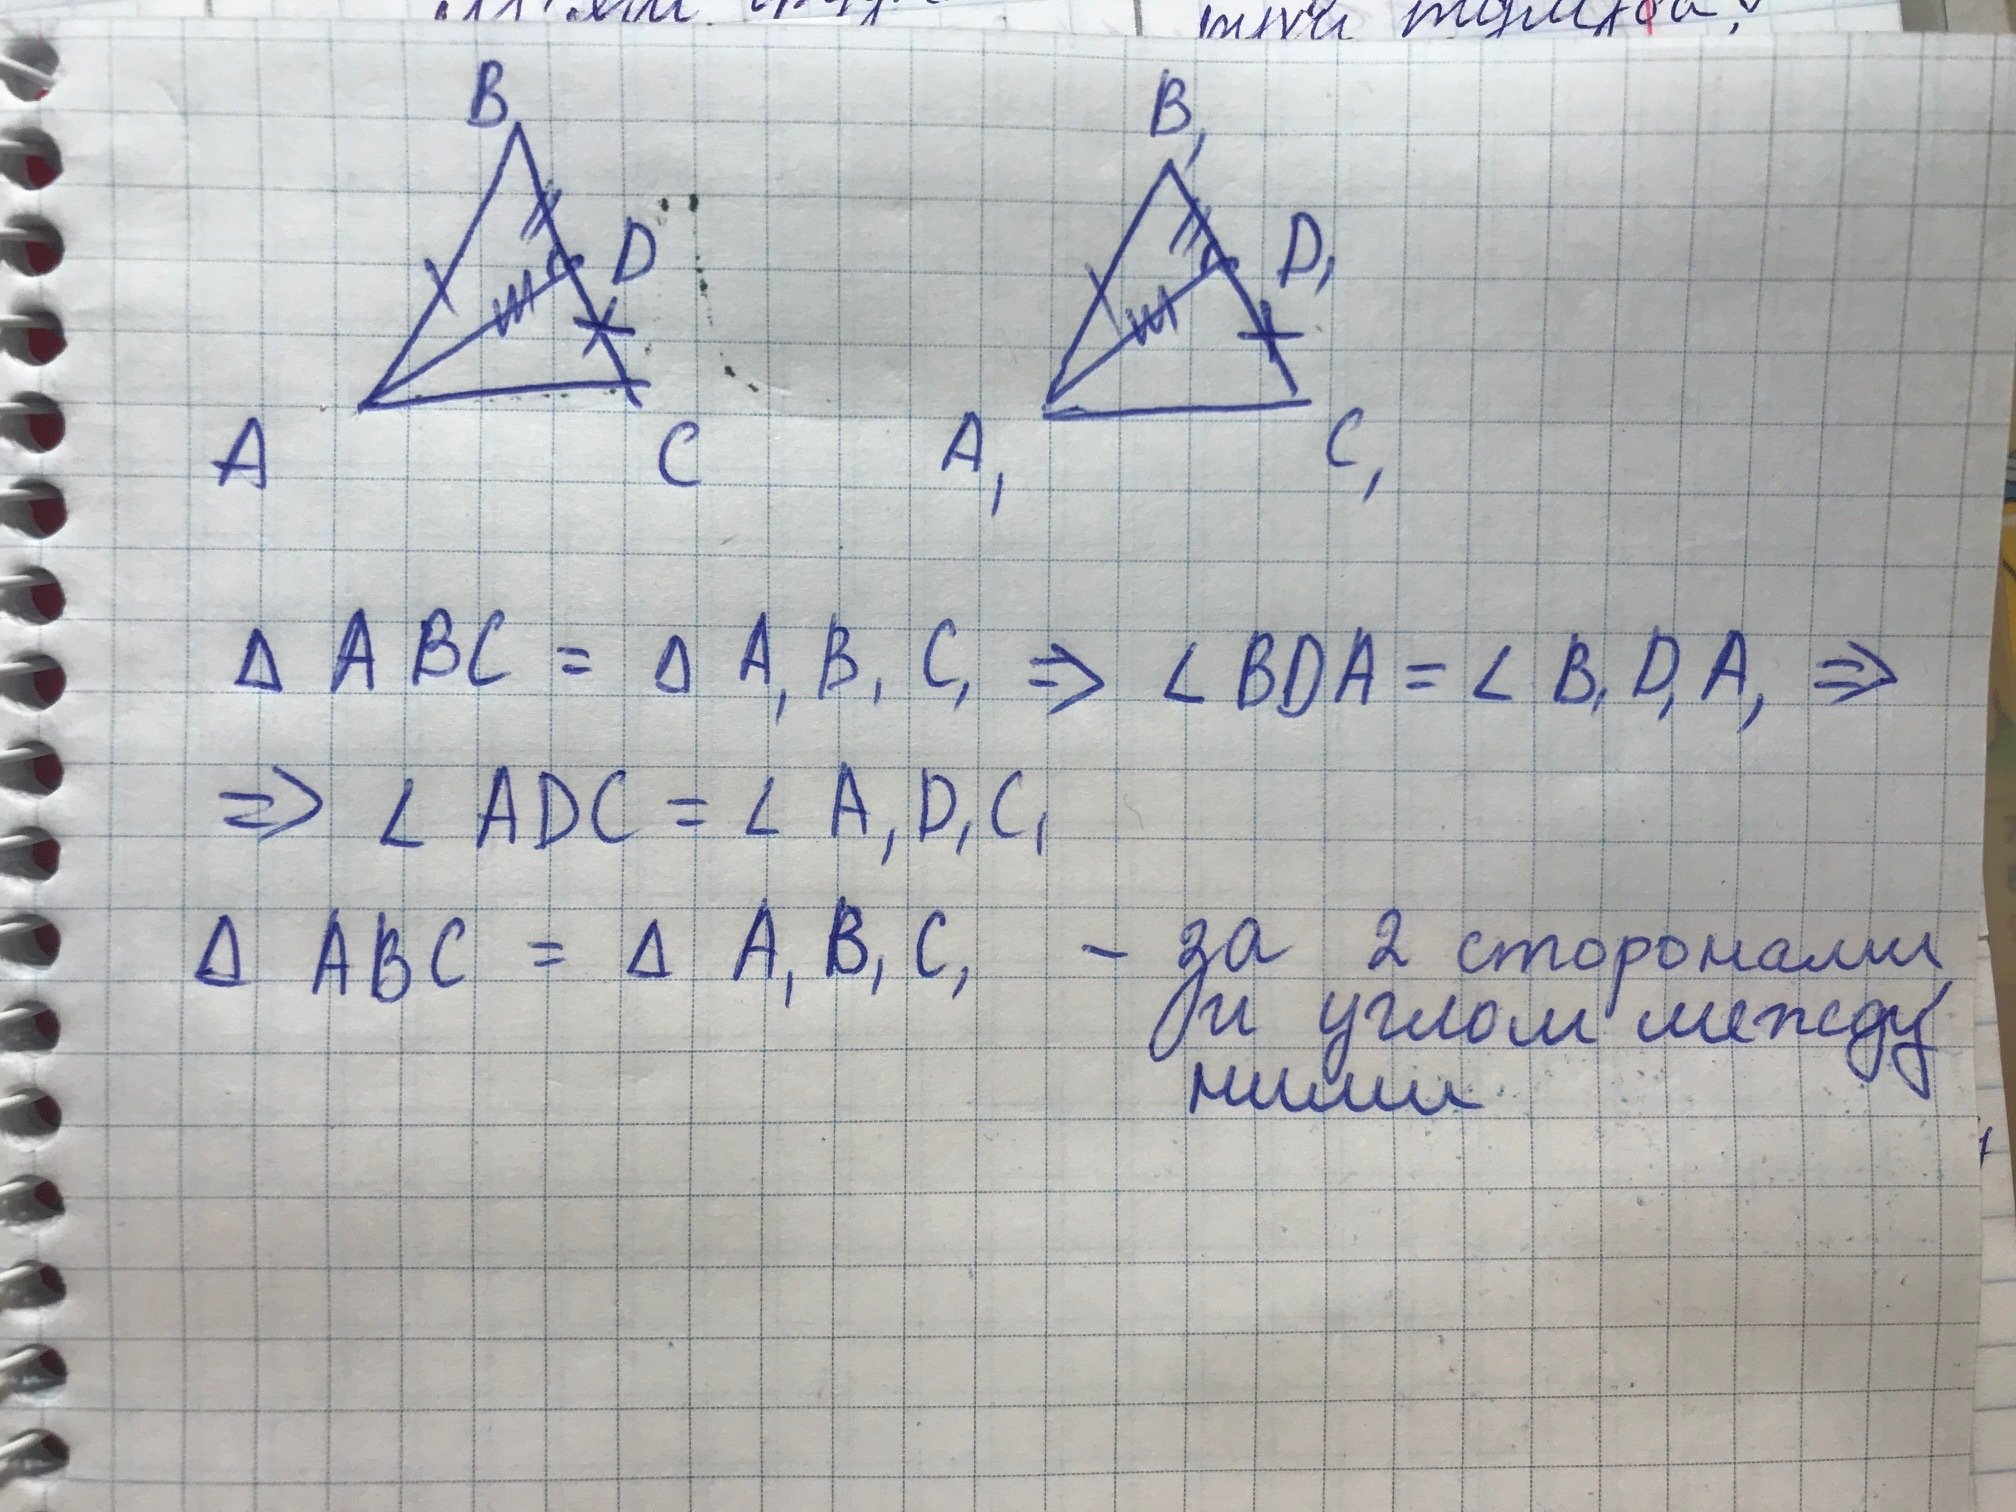 B B₁
D D₁
A C A₁ C₁
Δ ABC = Δ A₁B₁C₁ ⇒ ∠BDA = ∠B₁D₁A₁ ⇒
⇒ ∠ADC = ∠A₁D₁C₁
Δ ABC = Δ A₁B₁C₁ - за 2 сторонами
и углом между
ними